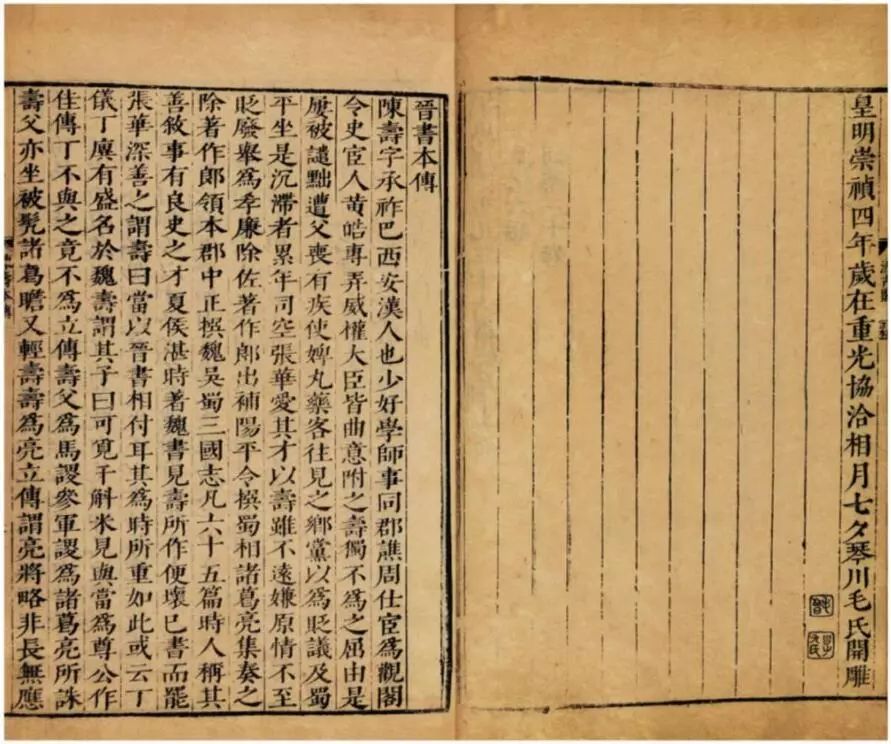 皇明崇禎四年歲在重光協洽相月七夕琴川毛氏開雕
晉書本傳
陳壽字承祚巴西安漢人也少好學師事同郡譙周仕宦爲觀閣
令史宦人黃皓專弄威權大臣皆曲意附之壽獨不爲之屈由是
屢被譴黜遭父喪有疾使婢丸藥客往見之鄉黨以爲貶議及蜀
平坐是沉滯者累年司空張華愛其才以壽雖不遠嫌原情不至
貶廢舉爲孝廉除佐著作郎出補陽平令撰蜀相諸葛亮集奏之
除著作郎領本郡中正撰魏吳蜀三國志凡六十五篇時人稱其
善敘事有良史之才夏侯湛時著魏書見壽所作便壞巳書而罷
張華深善之謂壽曰當以晉書相付耳其爲時所重如此或云丁
儀丁廙有盛名於魏壽謂其子曰可覓千斛米見與當爲尊公作
佳傳丁不與之竟不爲立傳壽父爲馬謖參軍謖爲諸葛亮所誅
壽父亦坐被髡諸葛瞻又輕壽壽爲亮立傳謂亮將略非長無應